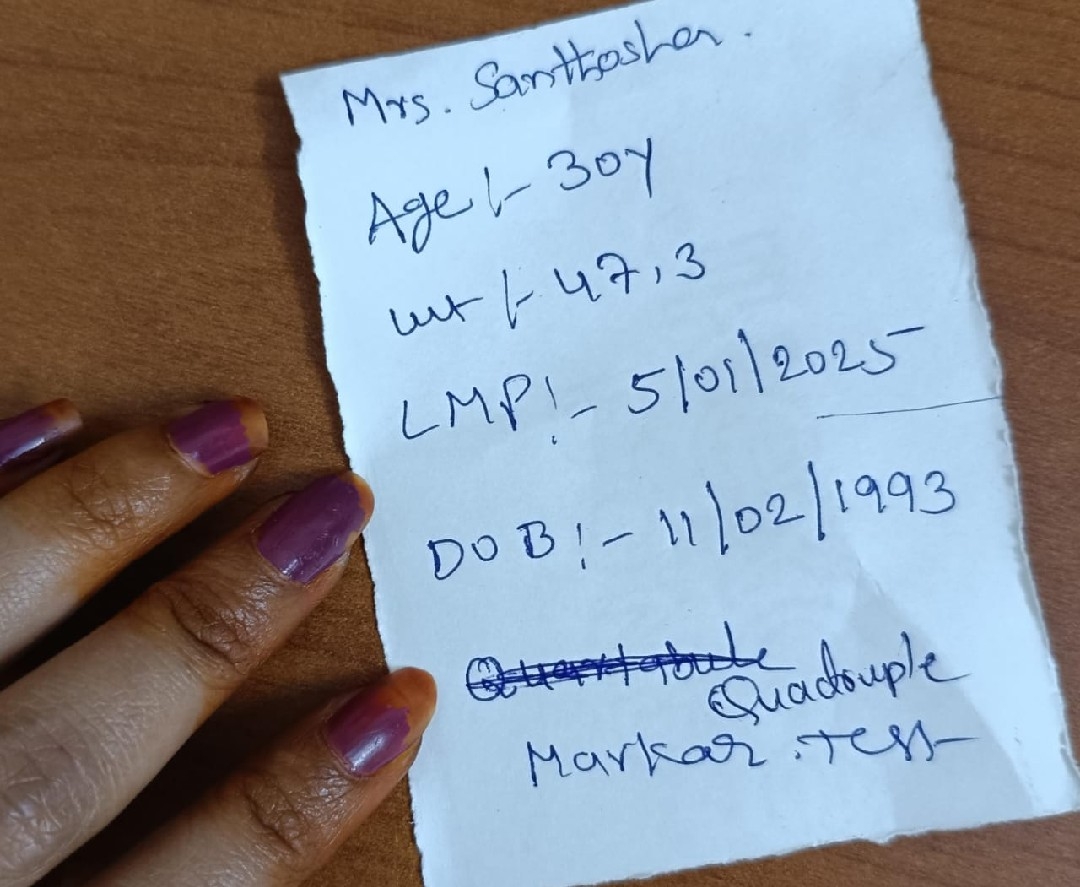 Mrs. Santhosha.
Age :- 30y
wt :- 47.3
LMP :- 5/01/2025
DOB :- 11/02/1993
Quadruple
Markar Test